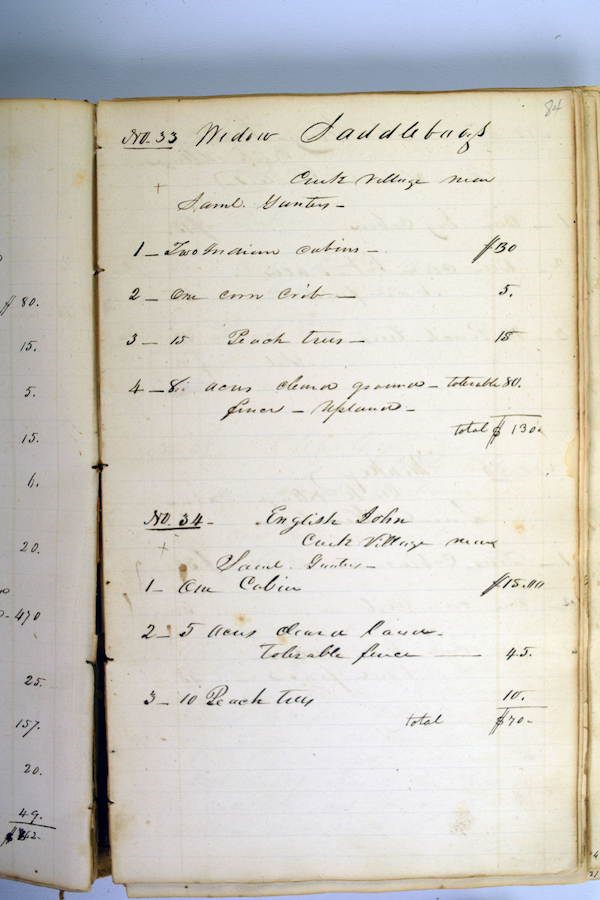 $ 80.
15.
5.
15.
6.
20.
- 470
25.
157.
20.
49.
84
No. 33 Widow Saddlebags
+ Creek Village near
Saml. Gunters -
1 - Two Indian cabins - $30
2 - One corn crib - 5.
3 - 15 Peach trees - 15
4 - 8 acres cleard ground - tolerable 80.
fence - Upland -
total $ 130.
No. 34 - English John
+ Creek Village near
Saml. Gunters -
1 - One Cabin $15.00
2 - 5 acres cleard land -
tolerable fence - 45.
3 - 10 Peach trees 10.
total $70 -